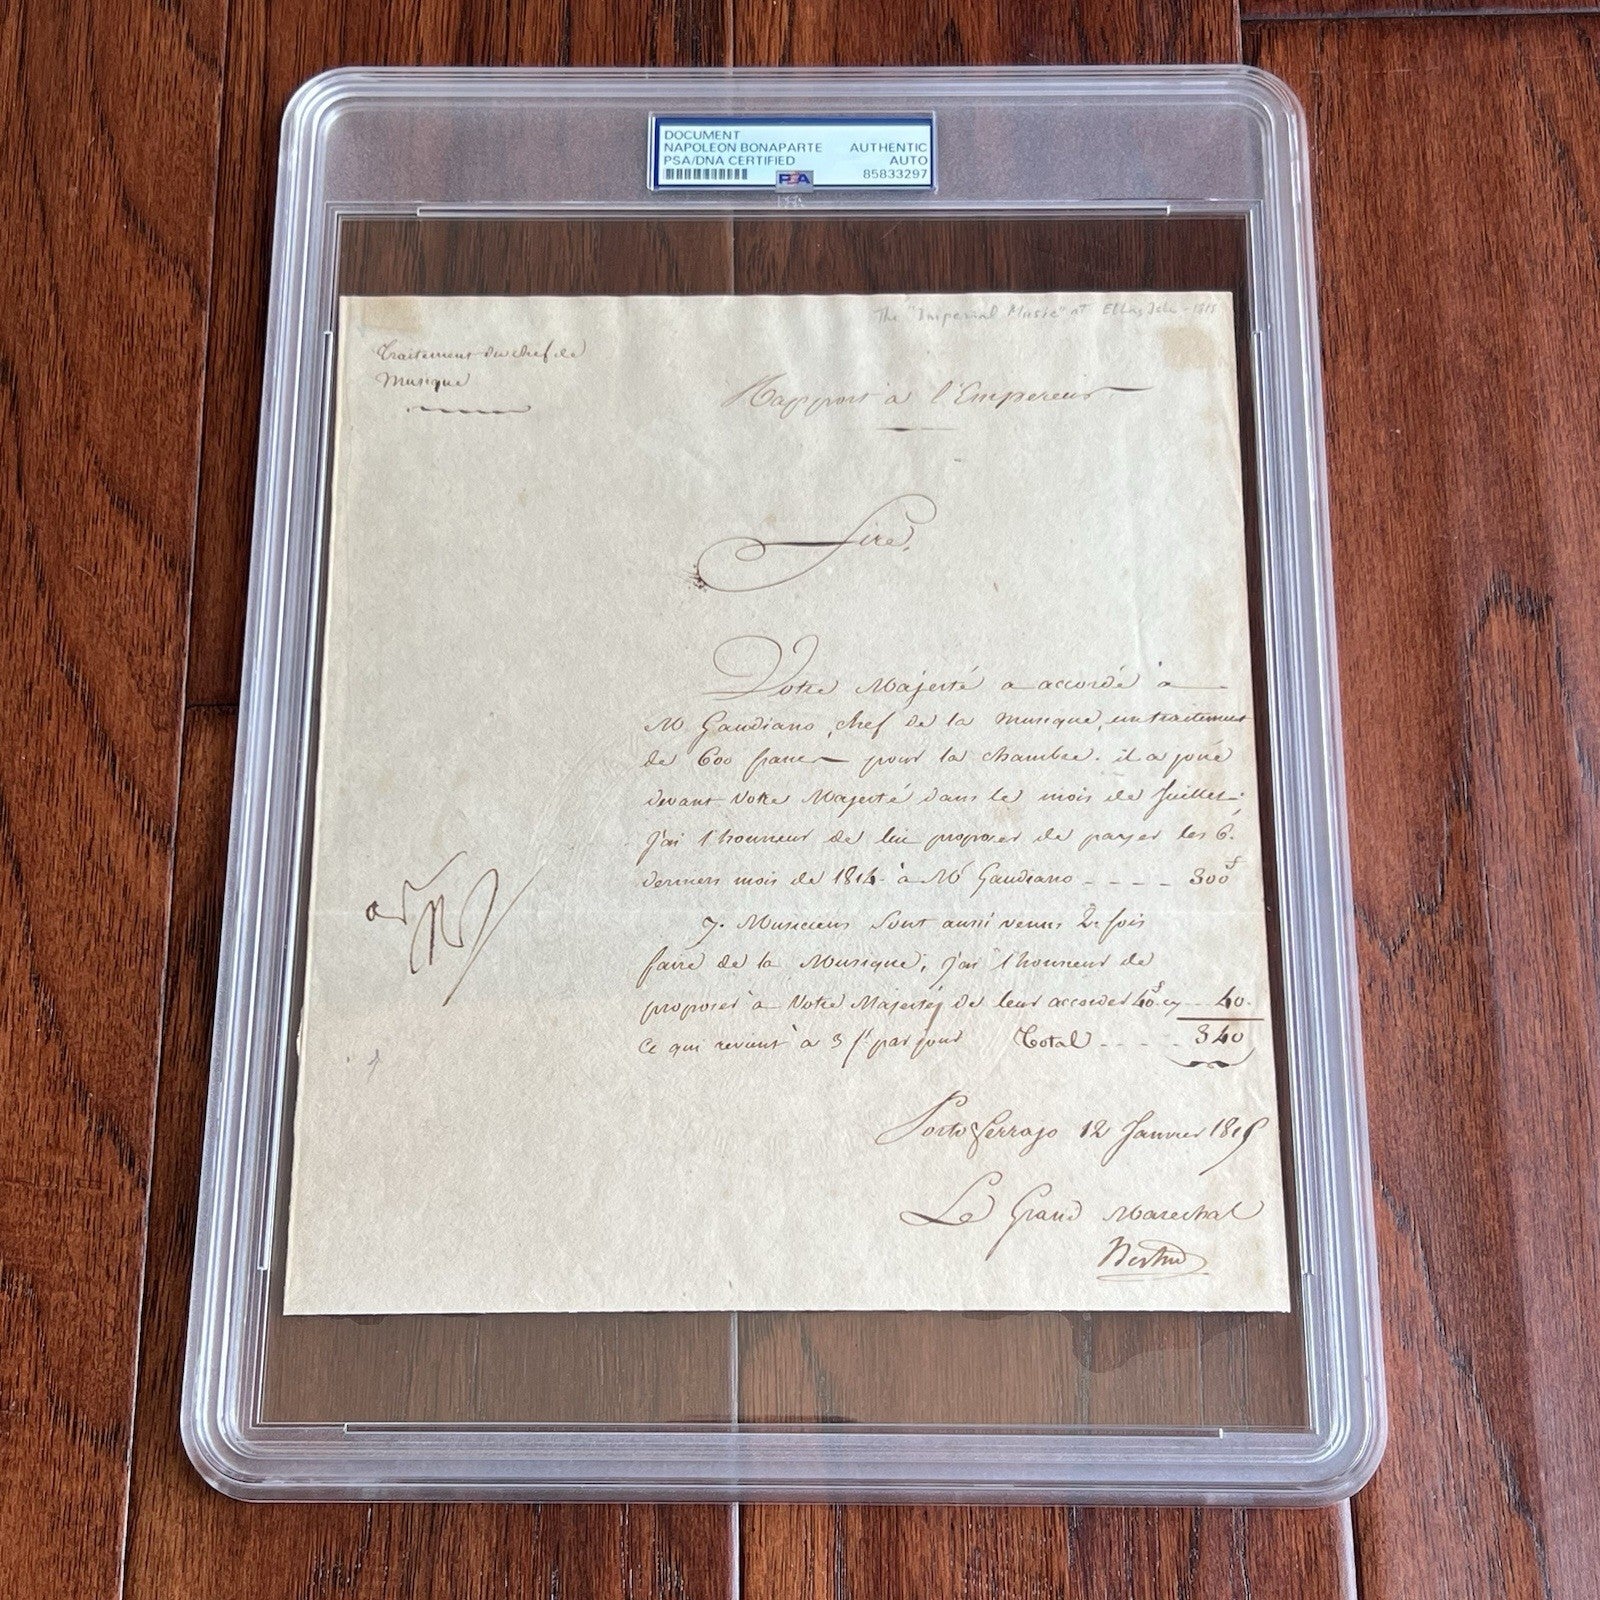 DOCUMENT
NAPOLEON BONAPARTE AUTHENTIC
PSA/DNA CERTIFIED AUTO
PSA 85833297
The "Imperial Music" at Elba Isle - 1815
Traitement du chef de
Musique
Rapport à l'Empereur
Sire,
Votre Majesté a accordé à
M Gaudiano, chef de la musique, un traitement
de 600 francs pour la chambre. il a joué
devant Votre Majesté dans le mois de Juillet;
J'ai l'honneur de lui proposer de payer les 6.
derniers mois de 1814 à Mr Gaudiano - - - - 300f
7. Musiciens sont aussi venus 2. fois
faire de la Musique, j'ai l'honneur de
proposer à Votre Majesté de leur accorder 40f cy - - 40.
ce qui revient à 3 f. par jour Total - - - - 340
Porto ferrajo 12 Janvier 1815
Le Grand Marechal
Bertrand